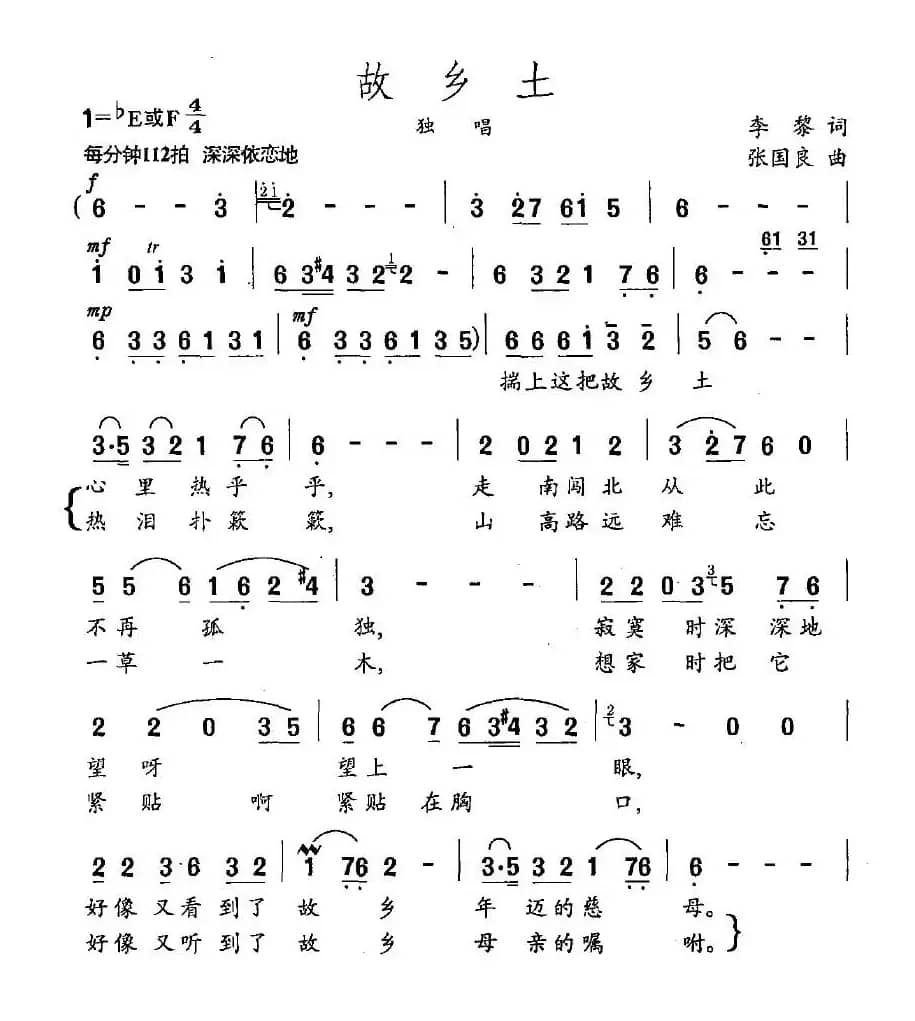 故乡土
1=♭E或F 4/4
独唱
李黎词
每分钟112拍 深深依恋地
张国良曲
f
(6 - - 3 | 2̇1̇ 2 - - - | 3 27 61 5 | 6 - - - |
mf tr 61 31
1 0 1 3 1 | 6 3#4 3 2 1 2 - | 6 3 2 1 7 6 | 6 - - - |
mp mf
6 3 3 6 1 3 1 | 6 3 3 6 1 3 5) | 6 6 6 1 3 2 | 5 6 - - |
揣上这把故乡土
3·5 3 2 1 7 6 | 6 - - - | 2 0 2 1 2 | 3 2 7 6 0 |
心里热乎乎, 走南闯北从此
热泪扑簌簌, 山高路远难忘
5 5 6 1 6 2 #4 | 3 - - - | 2 2 0 3 3 5 7 6 |
不再孤独, 寂寞时深深地
一草一木, 想家时把它
2 2 0 3 5 | 6 6 7 6 3#4 3 2 | 2 3 - 0 0 |
望呀望上一眼,
紧贴啊紧贴在胸口,
2 2 3·6 3 2 | 1 76 2 - | 3·5 3 2 1 76 | 6 - - - |
好像又看到了故乡年迈的慈母。
好像又听到了故乡母亲的嘱咐。